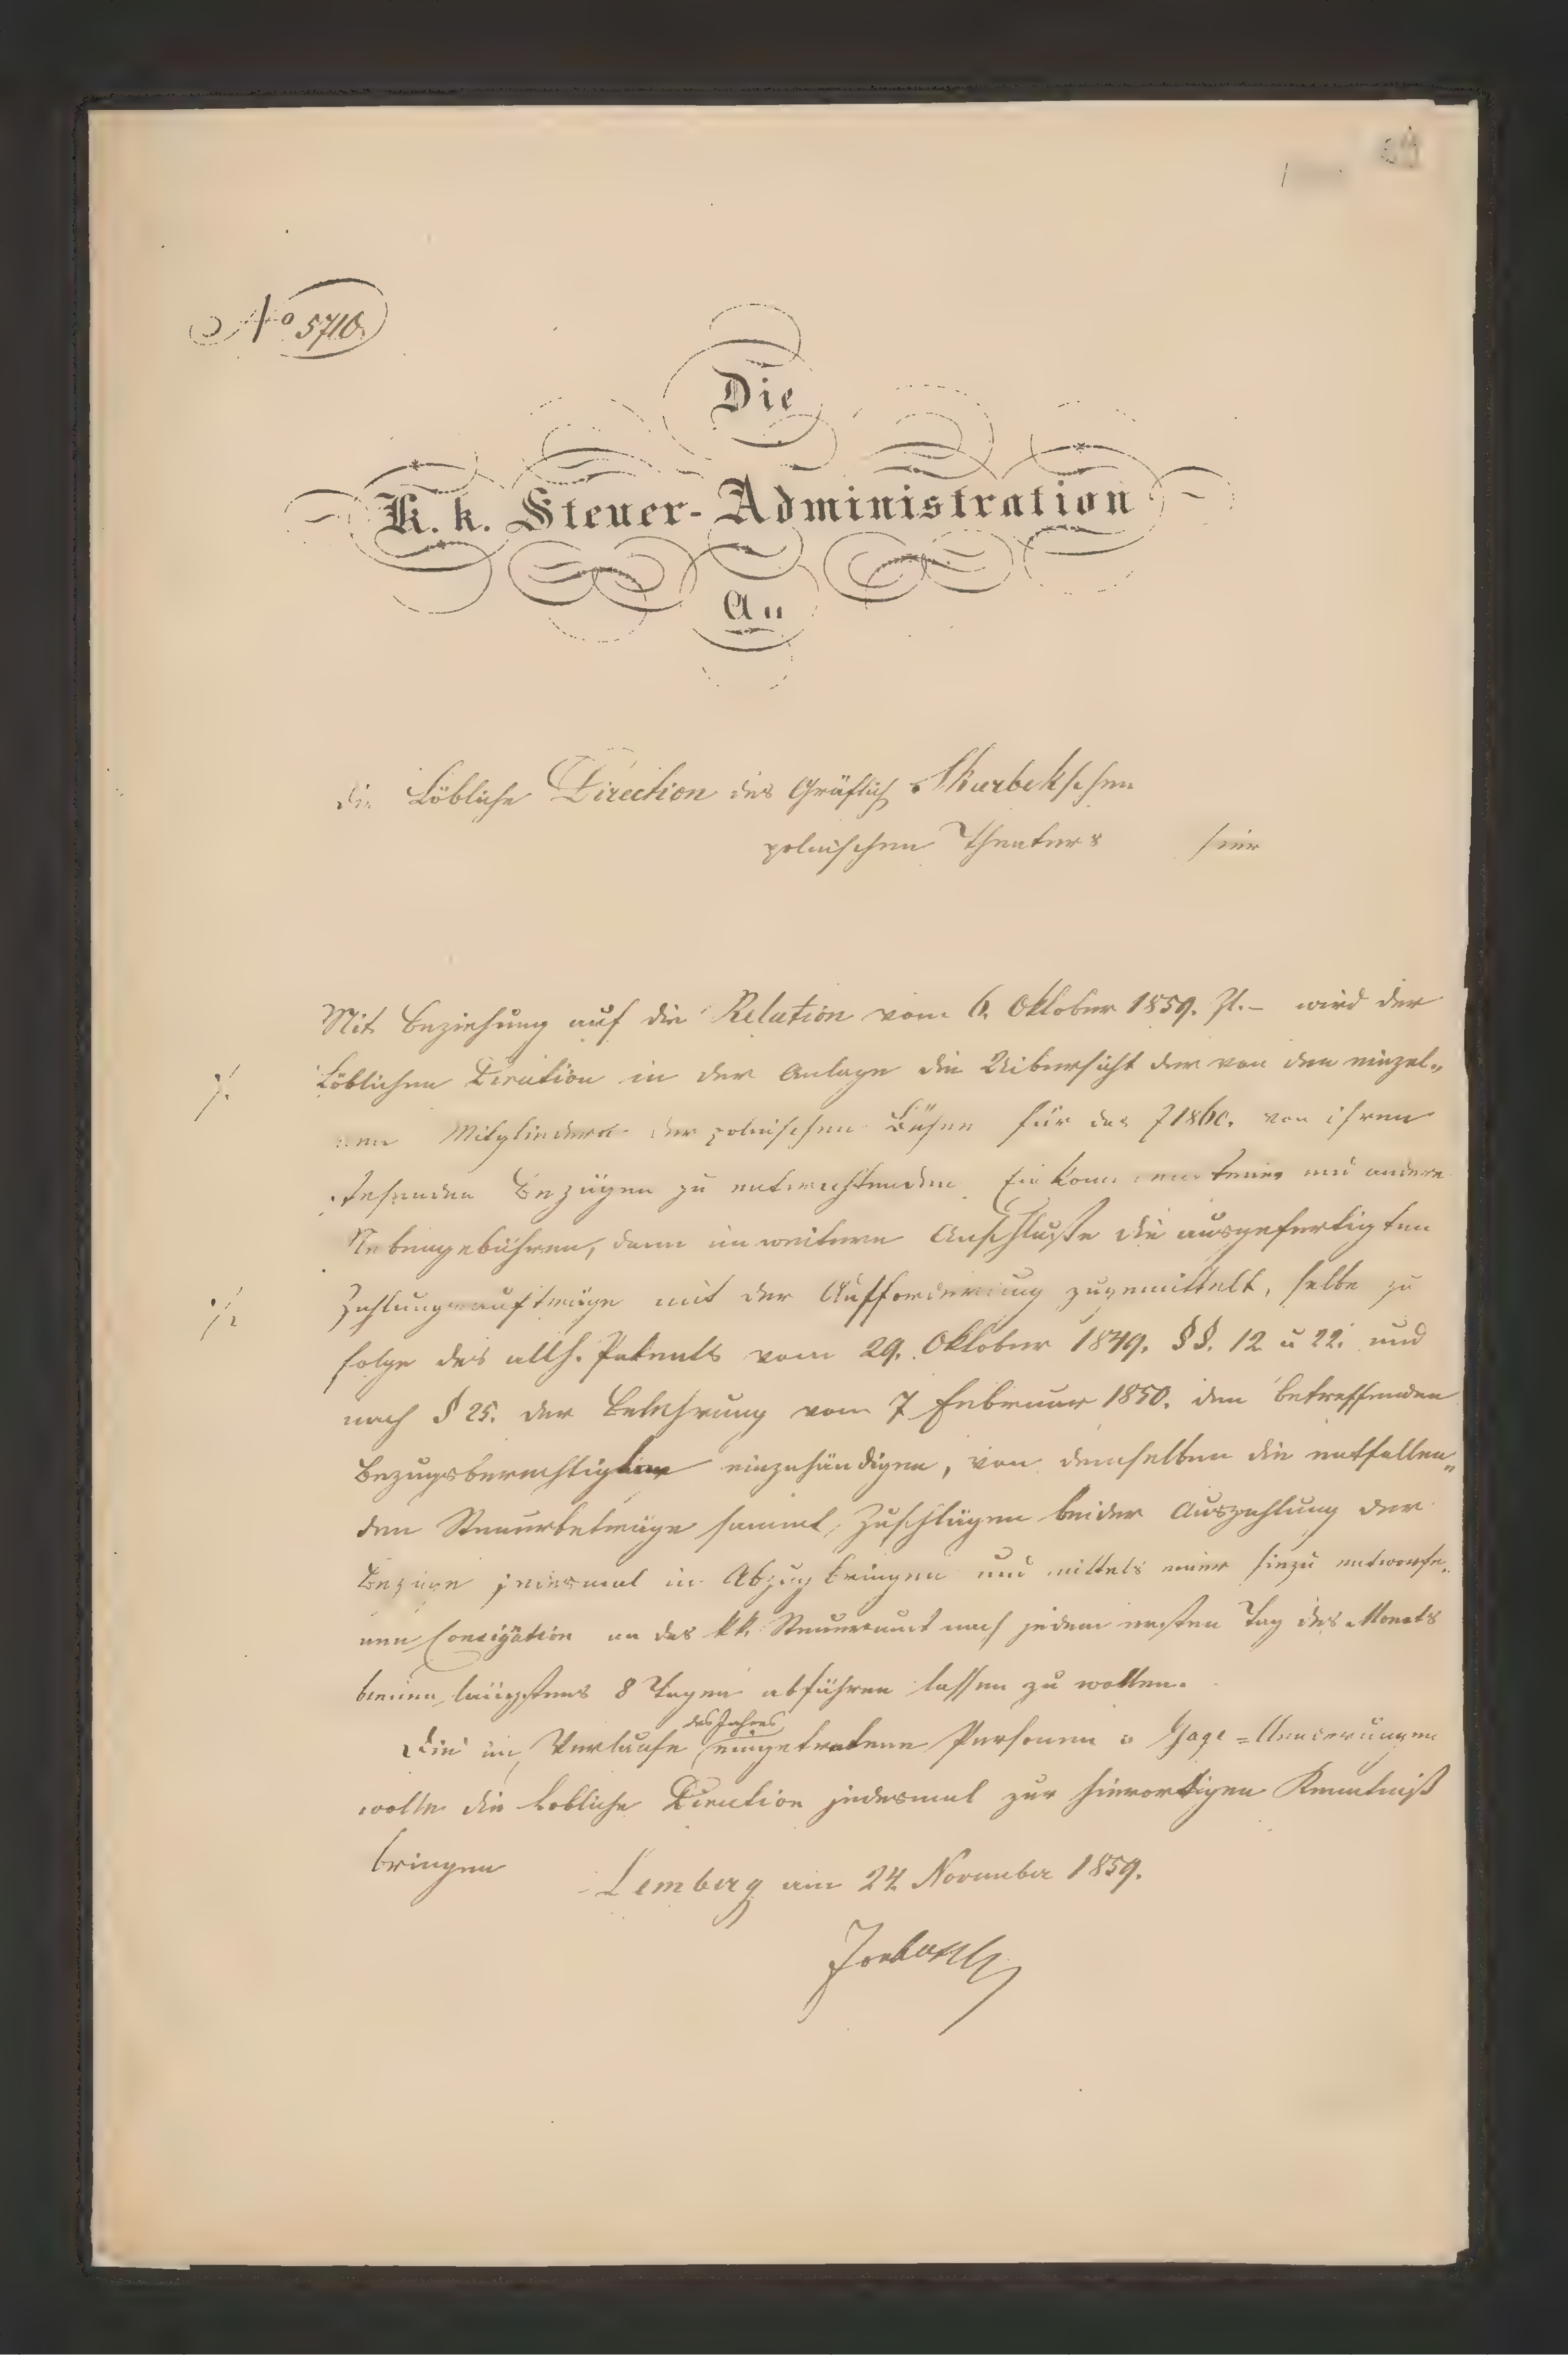 No 5710.
Die
K. k. Steuer-Administration
An
die Löbliche Direction des Gräflich Skarbekschen
polnischen Theaters hier
Mit Beziehung auf die Relation vom 6. Oktober 1859. Zl.- wird der
./. Löblichen Direction in der Anlage die Uibersicht der von den einzel„
nen Mitgliedern der polnischen Bühne für das J 1860. von ihren
stehenden Bezügen zu entrichtenden Einkommensteuer und andere
Nebengebühren, dann im weitern Anschluße die ausgefertigten
./. Zahlungsaufträge mit der Aufforderung zugemittelt, selbe zu
folge des allh. Patents vom 29. Oktober 1849. §§. 12 u 22. und
nach § 25. der Belehrung vom 7 Februar 1850. den betreffenden
Bezugsberechtigten einzuhändigen, von demselben die entfallen„
den Steuerbeträge sammt Zuschlägen bei der Auszahlung der
Bezüge jedesmal in Abzug bringen und mittels einer hiezu entworfe„
nen Consignation an das kk. Steueramt nach jedem ersten Tag des Monats
binnen längstens 8 Tagen abführen lassen zu wollen.
Die im Verlaufe des Jahres eingetretene Personen u Gage=Aenderungen
wolle die Löbliche Direction jedesmal zur hierortigen Kenntniß
bringen
Lemberg am 24 November 1859.